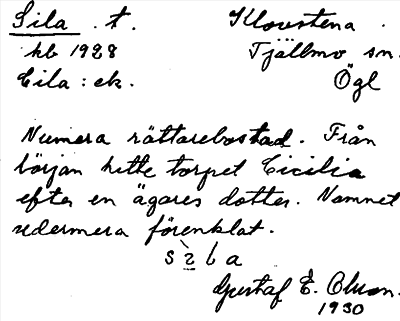 Sila . t. Klovstena .
kb 1928 Tjällmo sn.
Cila : ek. Ögl
Numera rättarebostad. Från
början hette torpet Cicilia
efter en ägares dotter. Namnet
sedermera förenklat.
Gustaf E. Olsson.
1930